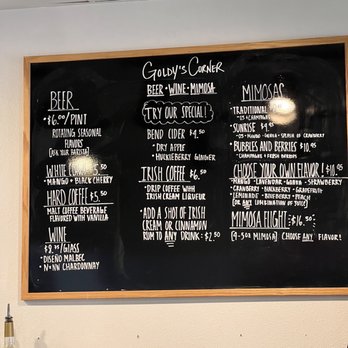 GOLDY'S CORNER
BEER - WINE - MIMOSA
BEER
• $6.00/PINT
ROTATING SEASONAL
FLAVORS
(ASK YOUR BARISTA)
WHITE
• MANGO • BLACK CHERRY
HARD COFFEE $5.50
MALT COFFEE BEVERAGE
FLAVORED WITH VANILLA
WINE
/GLASS
• DISEÑO MALBEC
CHARDONNAY
TRY OUR SPECIAL!
BEND CIDER
• DRY APPLE
• HUCKLEBERRY GINGER
IRISH COFFEE $6.50
• DRIP COFFEE WITH
IRISH CREAM LIQUEUR
ADD A SHOT OF IRISH
CREAM OR CINNAMON
RUM TO ANY DRINK: $2.50
MIMOSAS
TRADITIONAL
• OJ + CHAMPAGNE
SUNRISE
• OJ - MANGO - GUAVA - SPLASH OF CRANBERRY
BUBBLES AND BERRIES $10.95
• CHAMPAGNE + FRESH BERRIES
CHOOSE YOUR OWN FLAVOR! $10.95
• MANGO • LAVENDAR • GUAVA • STRAWBERRY
• CRANBERRY • BLACKBERRY • GRAPEFRUIT
• LEMONADE • BLUEBERRY • PEACH
(OR ANY COMBINATION OF JUICE)
MIMOSA FLIGHT $16.50
(4-5oz MIMOSA) CHOOSE ANY FLAVOR!